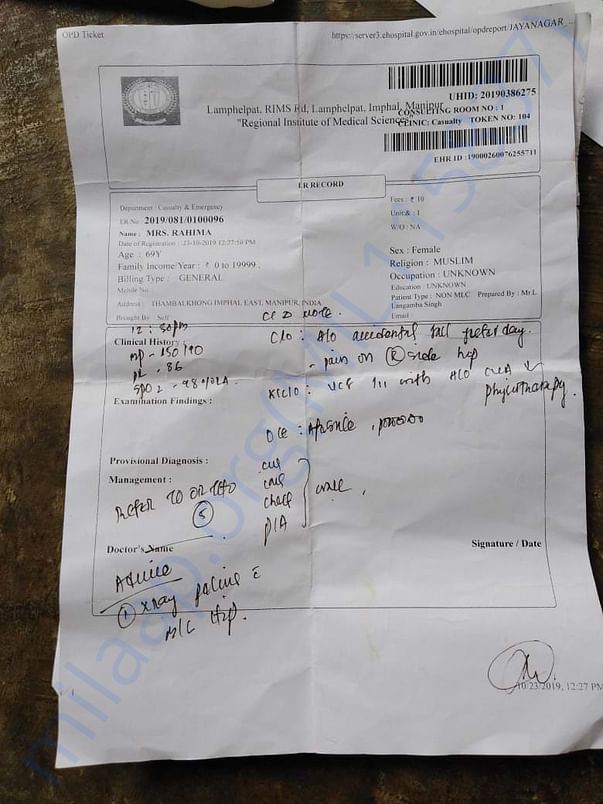 OPD Ticket
https://server3.ehospital.gov.in/ehospital/opdreport/JAYANAGAR_...
UHID: 20190386275
Lamphelpat, RIMS Rd, Lamphelpat, Imphal, Manipur
CONSULTING ROOM NO : 1
"Regional Institute of Medical Sciences"
CLINIC: Casualty TOKEN NO: 104
EHR ID : 19000260076255711
ER RECORD
Department : Casualty & Emergency
ER No 2019/081/0100096
Name : MRS. RAHIMA
Date of Registration : 23-10-2019 12:27:10 PM
Age : 69Y
Family Income/Year : ₹ 0 to 19999 .
Billing Type : GENERAL
Mobile No.
Address : THAMBALKHONG IMPHAL EAST, MANIPUR, INDIA
Brought By : Self
Fees : ₹ 10
Unit& : 1
W/O : NA
Sex : Female
Religion : MUSLIM
Occupation : UNKNOWN
Education : UNKNOWN
Patient Type : NON MLC Prepared By : Mr.L
Langamba Singh
Email
12 : 50pm
Clinical History :
BP - 150/90
PR - 86
SPO2 - 98%RA
C/O : A/O accidental fall yesterday.
- pain on (R) side hip
K/C/O : with H/O
physiotherapy.
Examination Findings :
O/E : Afebrile ,
Provisional Diagnosis :
CVS
Management :
CNS
Refer to Ortho
Chest
(S)
P/A
Doctor's Name
Signature / Date
Advice
(1) Xray pelvis c
B/L Hip.
10/23/2019, 12:27 PM
milaap.org(MIL1